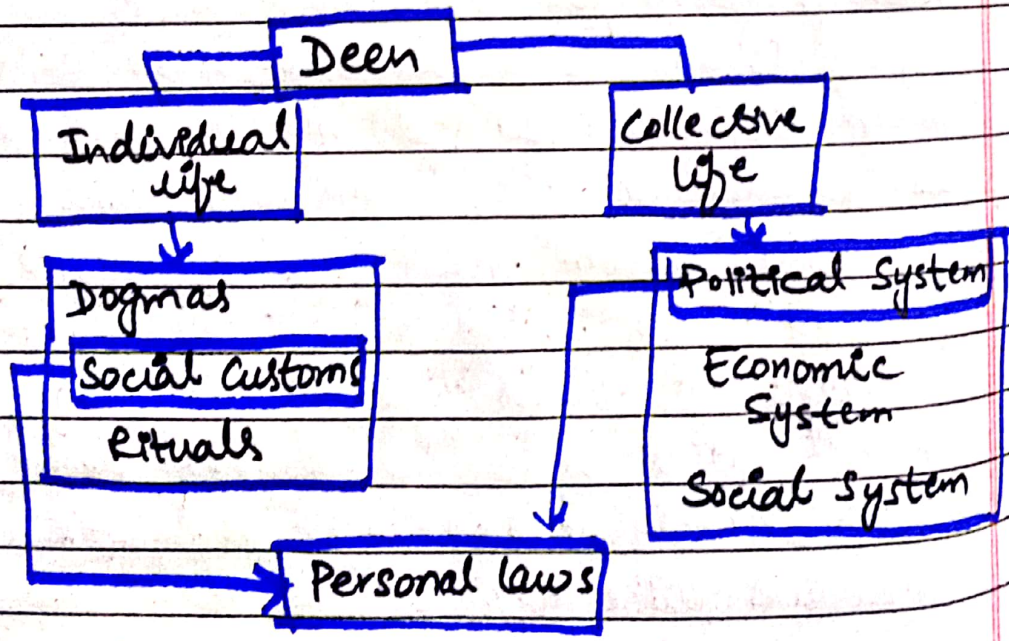 Deen
Individual
life
Collective
life
Dogmas
Social Customs
Rituals
Political System
Economic
System
Social System
Personal laws